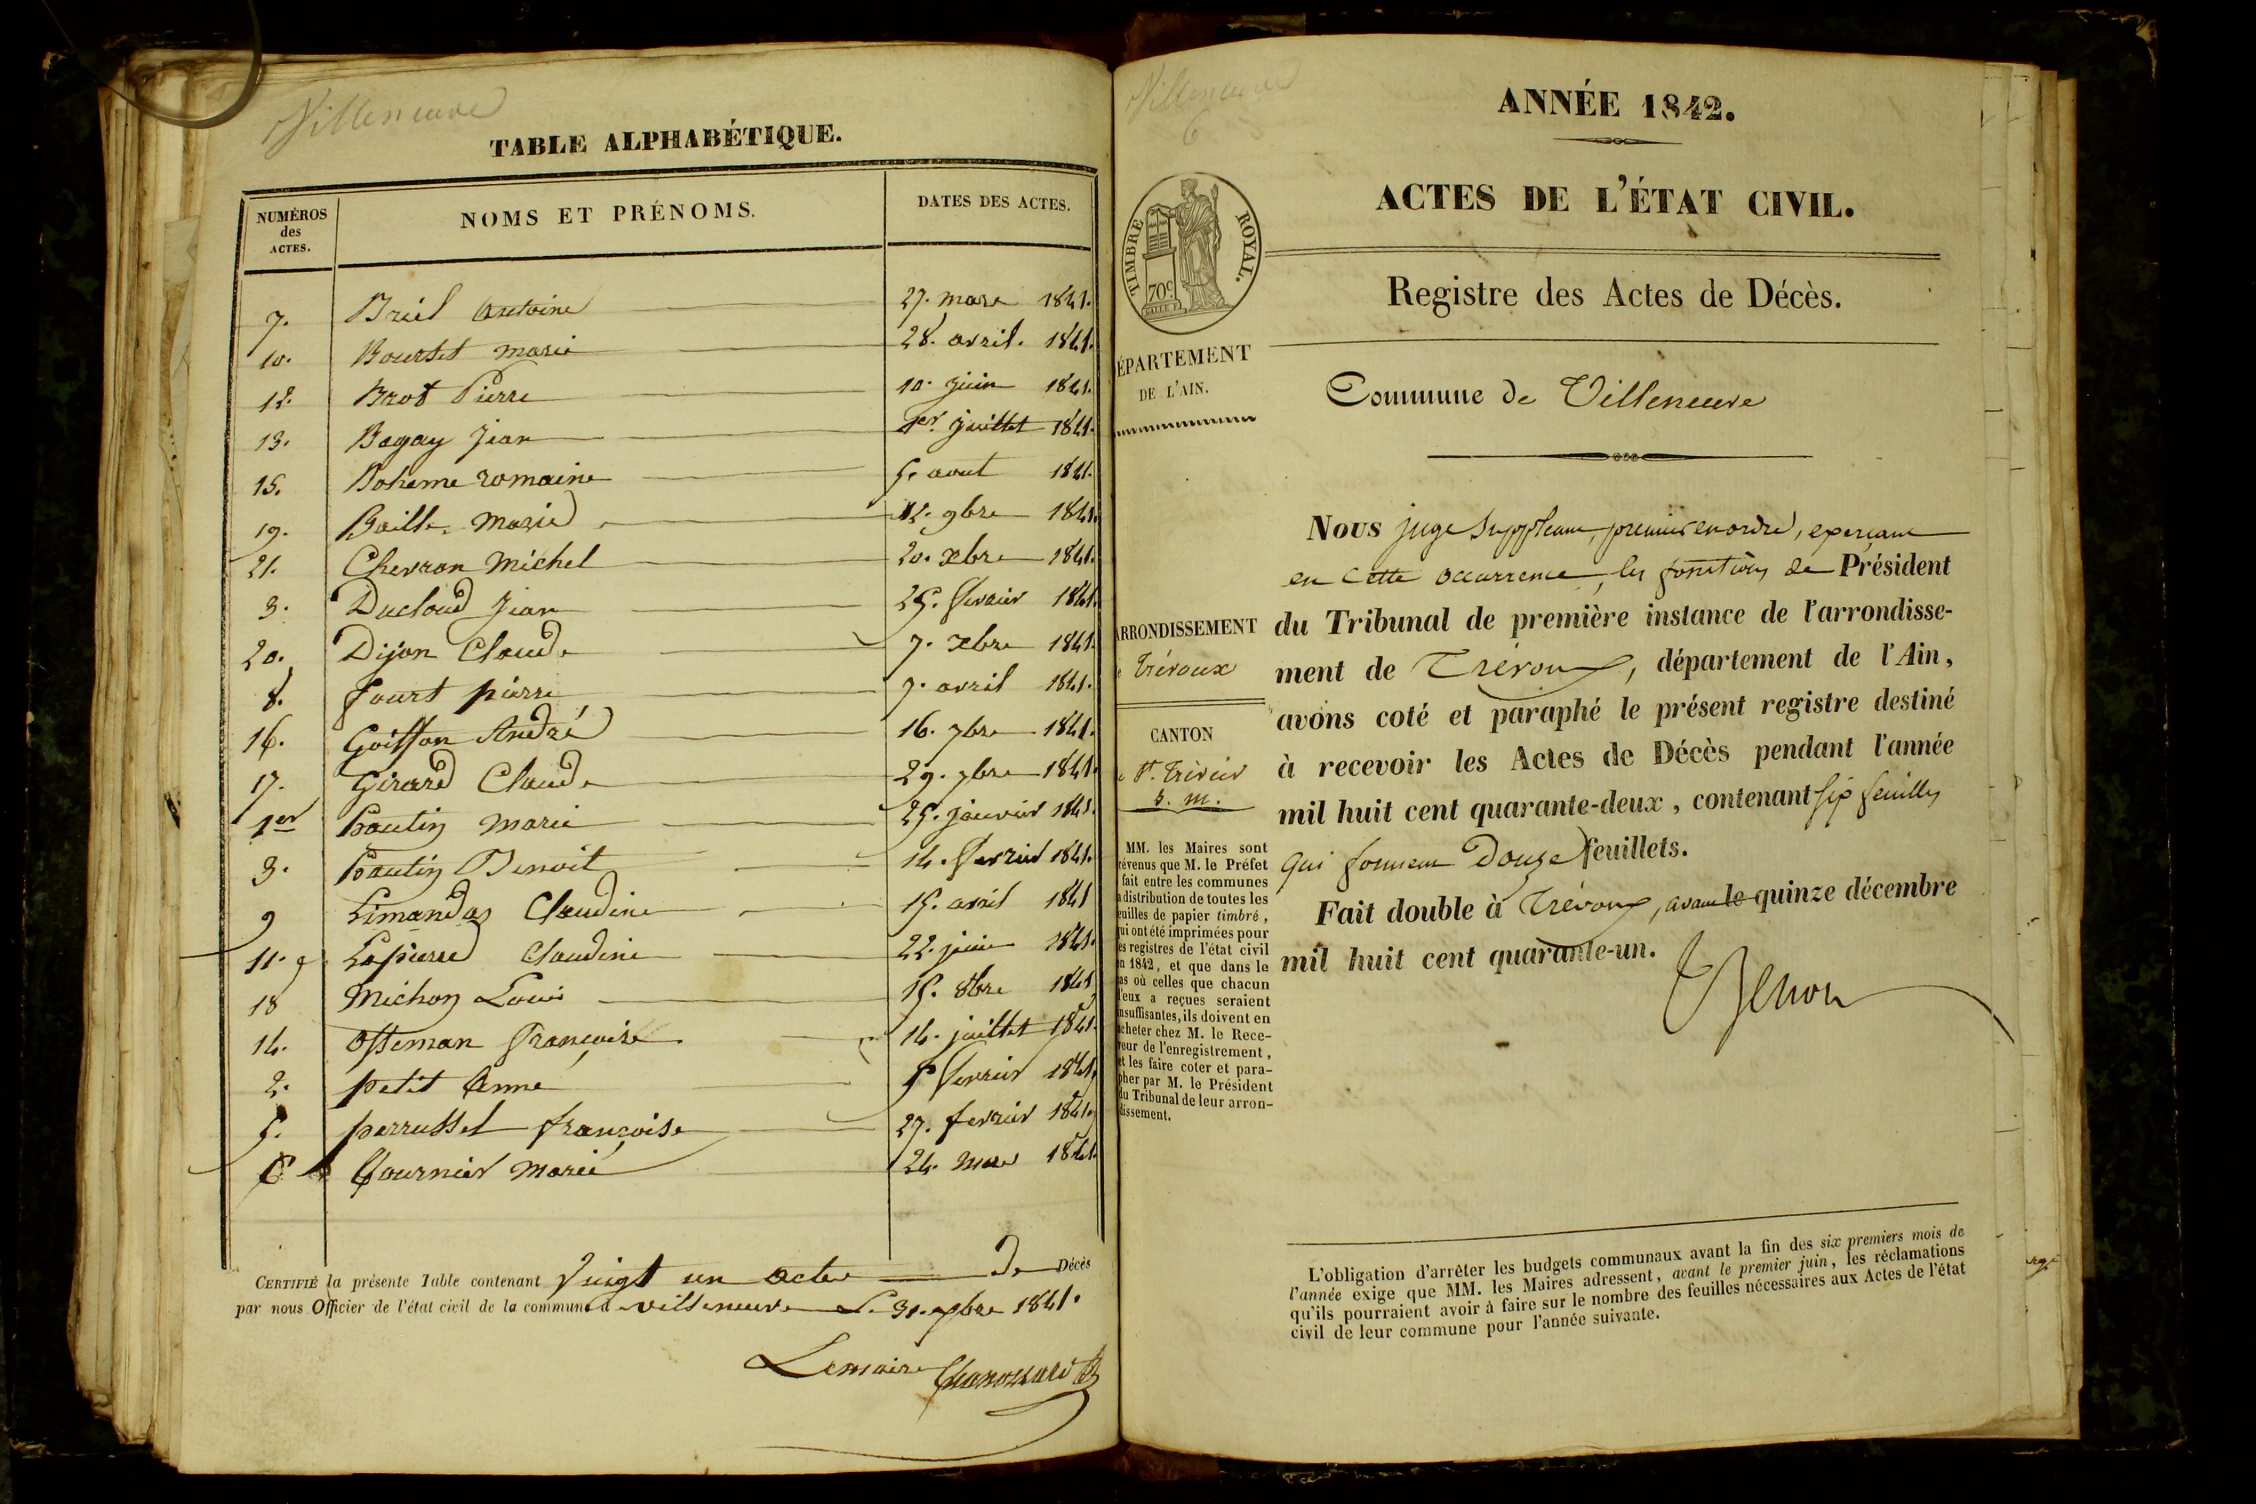 Villeneuve
TABLE ALPHABÉTIQUE.
NUMÉROS des ACTES. NOMS ET PRÉNOMS. DATES DES ACTES.
7. Briel antoine 27. mars 1841.
10. Bourtet marie 28. avril. 1841.
12. Brot Pierre 10. juin 1841.
13. Bagay Jean 1er juillet 1841.
15. Boheme romaine 5. aout 1841.
19. Baille marie 12. 9bre 1841.
21. Chevron Michel 20. xbre 1841.
3. Ducloud Jean 25. fevrier 1841.
20. Dijon Claude 7. xbre 1841.
8. fourt pierre 7. avril 1841.
16. Goiffon André 16. 7bre 1841.
17. Girard Claude 29. 7bre 1841.
1er hautin marie 25. janvier 1841.
3. hautin Benoit 14. fevrier 1841.
9 Limandas Claudine 15. avril 1841
11. Lapierre Claudine 22. juin 1841.
18 Michon Louis 15. 8bre 1841
14. Osteman françoise 14. juillet 1841.
2. petit anne fevrier 1841.
5. perrussel françoise 27. fevrier 1841.
6 fournier marie 24. mars 1841.
CERTIFIÉ la présente Table contenant Vingt un actes de Décès
par nous Officier de l'état civil de la commune de villeneuve le 31. xbre 1841.
Lemaire
Villeneuve
6
ANNÉE 1842.
ACTES DE L'ÉTAT CIVIL.
TIMBRE ROYAL.
70c
Registre des Actes de Décès.
ÉPARTEMENT
DE L'AIN.
Commune de Villeneuve
Nous juge suppléant, premier en ordre, exerçant
en cette occurrence, les fonctions de Président
du Tribunal de première instance de l'arrondisse-
ment de Trévoux, département de l'Ain,
avons coté et paraphé le présent registre destiné
à recevoir les Actes de Décès pendant l'année
mil huit cent quarante-deux, contenant six feuilles
qui forment Douze feuillets.
Fait double à Trévoux, avant le quinze décembre
mil huit cent quarante-un.
ARRONDISSEMENT
Trévoux
CANTON
St. Trivier
s. m.
MM. les Maires sont
révenus que M. le Préfet
fait entre les communes
a distribution de toutes les
euilles de papier timbré,
ui ont été imprimées pour
es registres de l'état civil
n 1842, et que dans le
as où celles que chacun
'eux a reçues seraient
nsuffisantes, ils doivent en
cheter chez M. le Rece-
veur de l'enregistrement,
et les faire coter et para-
pher par M. le Président
du Tribunal de leur arron-
dissement.
L'obligation d'arrêter les budgets communaux avant la fin des six premiers mois de
l'année exige que MM. les Maires adressent, avant le premier juin, les réclamations
qu'ils pourraient avoir à faire sur le nombre des feuilles nécessaires aux Actes de l'état
civil de leur commune pour l'année suivante.